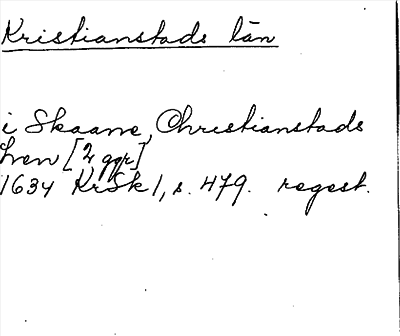 Kristianstads län
i Skaane, Christianstads
Lven [2 ggr]
1634 KrSk 1, s. 479. regest.